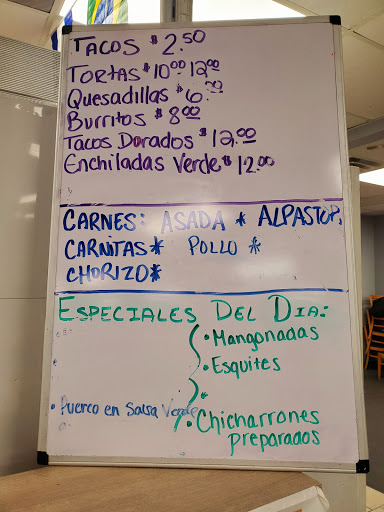 TACOS $2.50
TORTAS $10.00 12.00
Quesadillas $6.00
Burritos $8.00
Tacos Dorados $12.00
Enchiladas Verde $12.00
CARNES: ASADA * ALPASTOR,
CARNITAS* POLLO *
CHORIZO*
ESPECIALES DEL DIA:
• Mangonadas
• Esquites
• Puerco en Salsa Verde
• Chicharrones
preparados